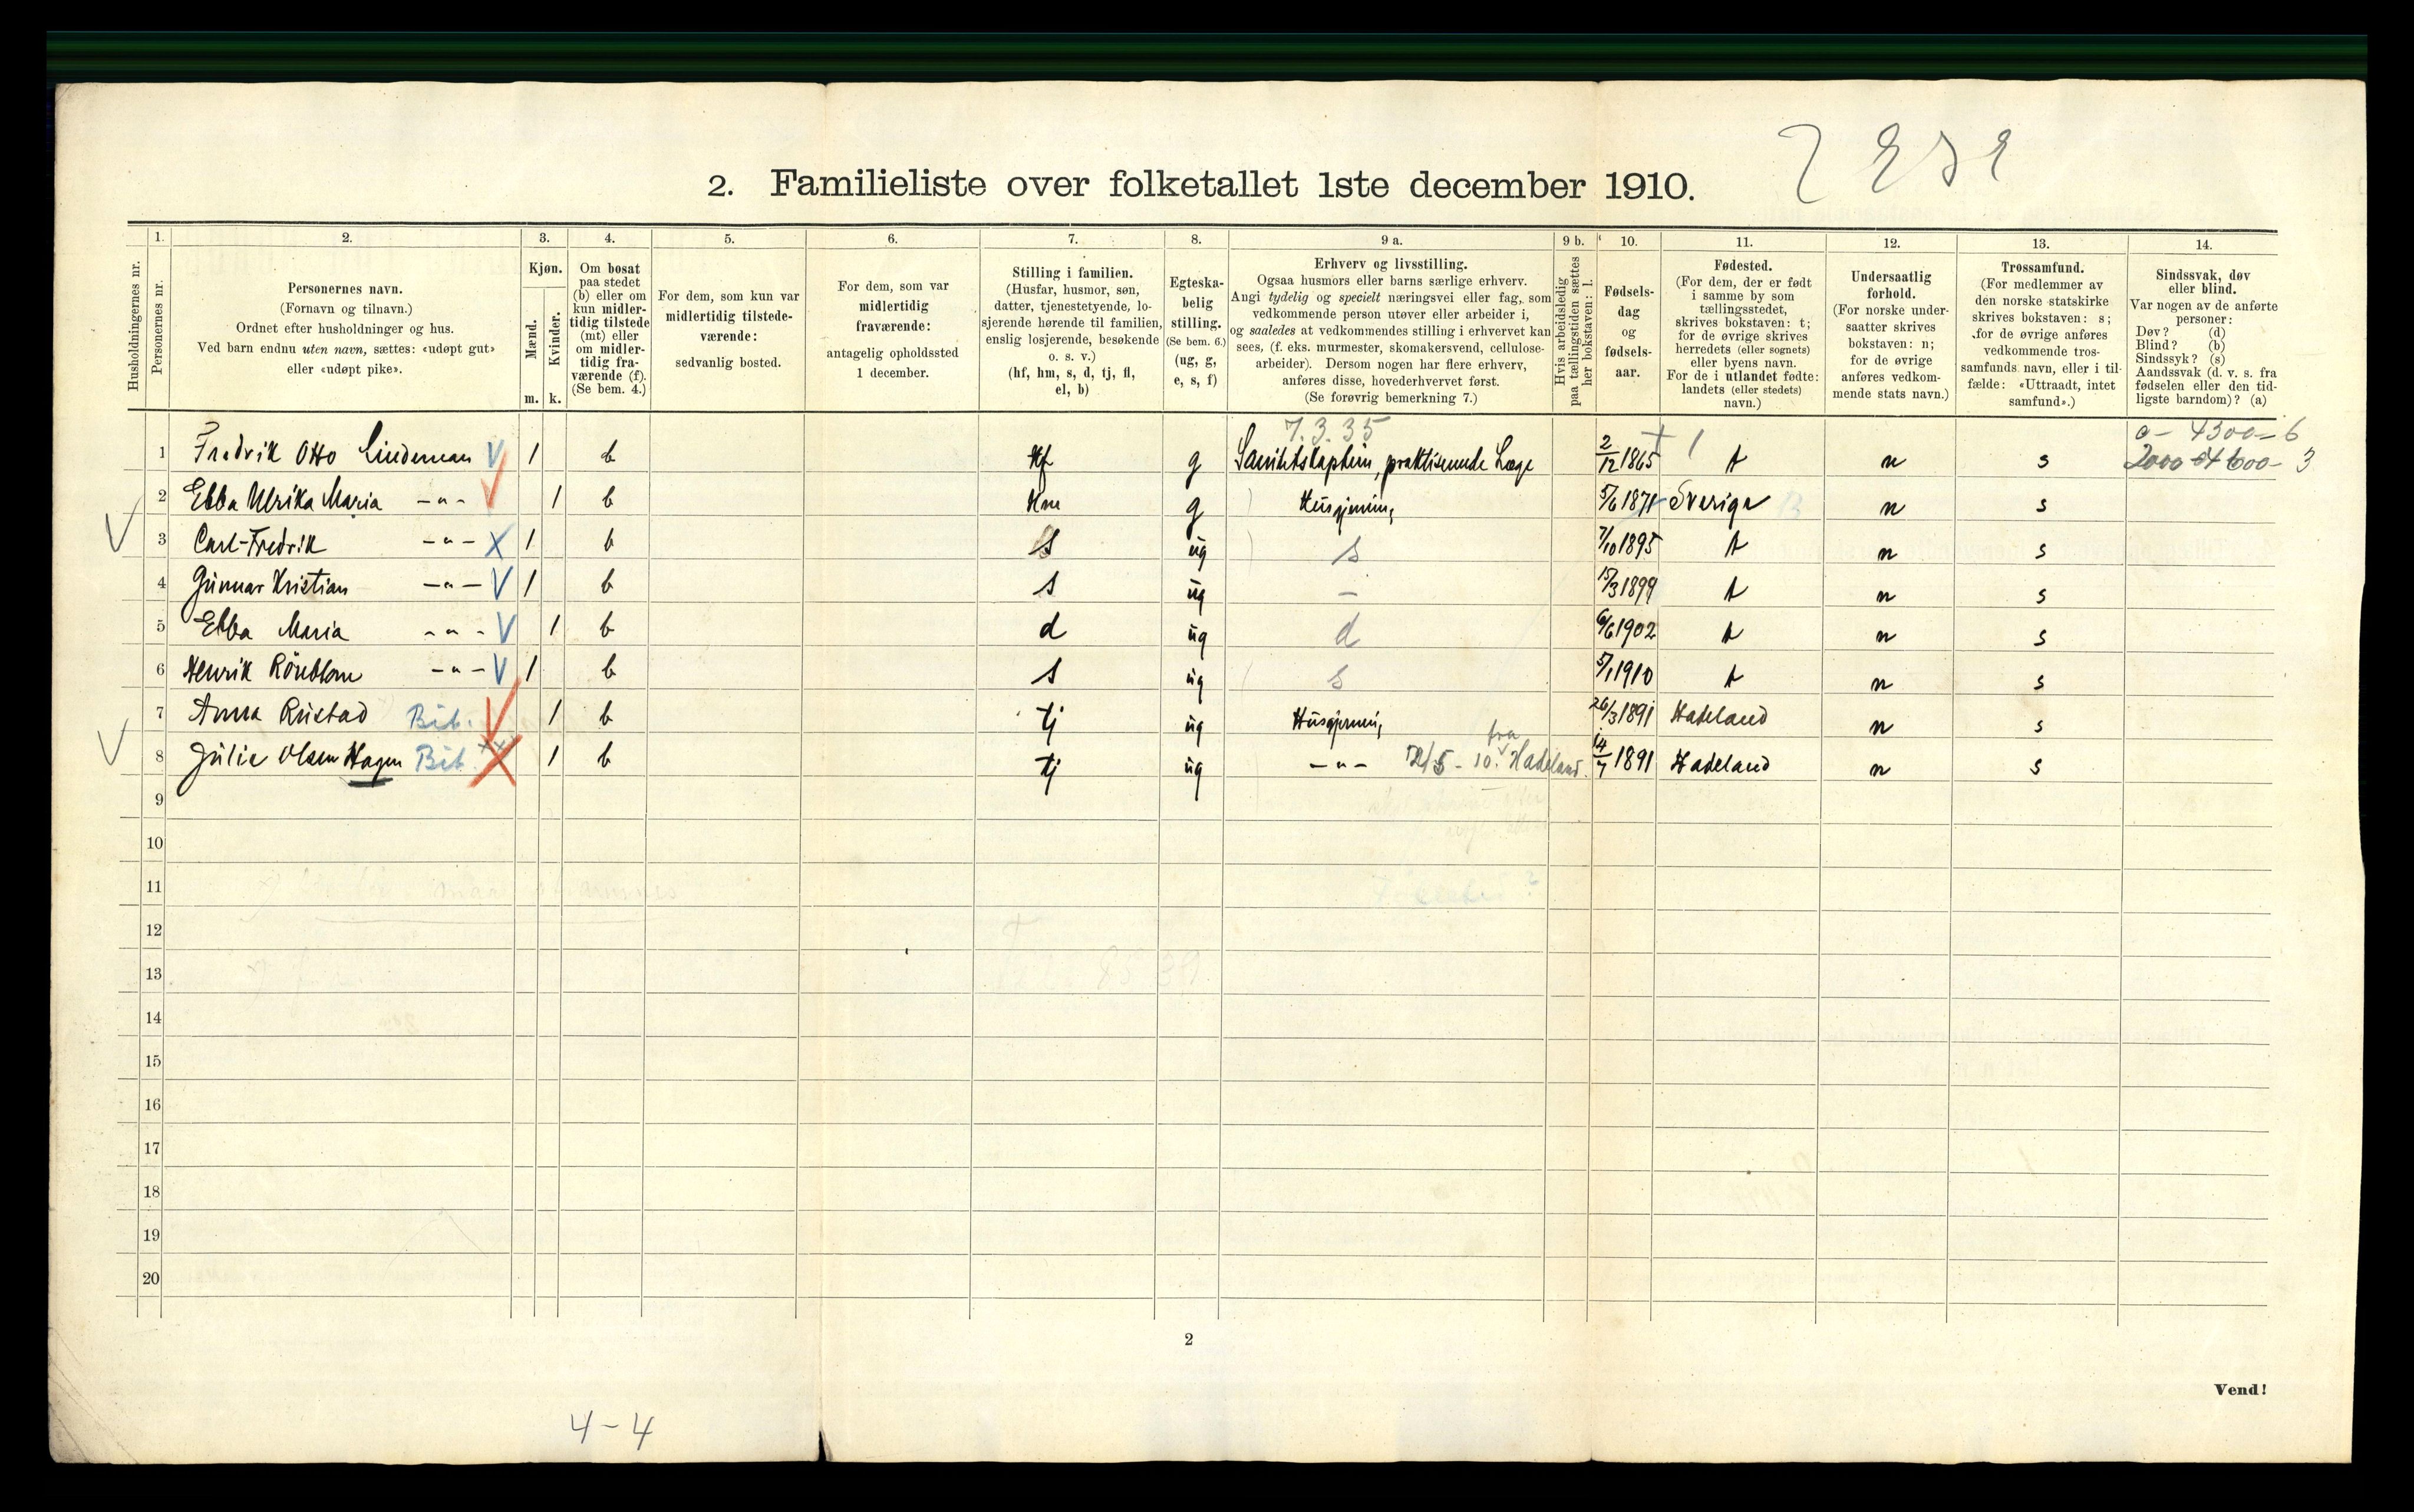 2. Familieliste over folketallet 1ste december 1910.
Husholdningernes nr.
1. Personernes nr.
2. Personernes navn.
(Fornavn og tilnavn.)
Ordnet efter husholdninger og hus.
Ved barn endnu uten navn, sættes: «udøpt gut»
eller «udøpt pike».
3. Kjøn.
Mænd. m.
Kvinder. k.
4. Om bosat
paa stedet
(b) eller om
kun midler-
tidig tilstede
(mt) eller
om midler-
tidig fra-
værende (f).
(Se bem. 4.)
5. For dem, som kun var
midlertidig tilstede-
værende:
sedvanlig bosted.
6. For dem, som var
midlertidig
fraværende:
antagelig opholdssted
1 december.
7. Stilling i familien.
(Husfar, husmor, søn,
datter, tjenestetyende, lo-
sjerende hørende til familien,
enslig losjerende, besøkende
o. s. v.)
(hf, hm, s, d, tj, fl,
el, b)
8. Egteska-
belig
stilling.
(Se bem. 6.)
(ug, g,
e, s, f)
9 a. Erhverv og livsstilling.
Ogsaa husmors eller barns særlige erhverv.
Angi tydelig og specielt næringsvei eller fag, som
vedkommende person utøver eller arbeider i,
og saaledes at vedkommendes stilling i erhvervet kan
sees, (f. eks. murmester, skomakersvend, cellulose-
arbeider). Dersom nogen har flere erhverv,
anføres disse, hovederhvervet først.
(Se forøvrig bemerkning 7.)
9 b. Hvis arbeidsledig
paa tællingstiden sættes
her bokstaven: l.
10. Fødsels-
dag
og
fødsels-
aar.
11. Fødested.
(For dem, der er født
i samme by som
tællingsstedet,
skrives bokstaven: t;
for de øvrige skrives
herredets (eller sognets)
eller byens navn.
For de i utlandet fødte:
landets (eller stedets)
navn.)
12. Undersaatlig
forhold.
(For norske under-
saatter skrives
bokstaven: n;
for de øvrige
anføres vedkom-
mende stats navn.)
13. Trossamfund.
(For medlemmer av
den norske statskirke
skrives bokstaven: s;
for de øvrige anføres
vedkommende tros-
samfunds navn, eller i til-
fælde: «Uttraadt, intet
samfund».)
14. Sindssvak, døv
eller blind.
Var nogen av de anførte
personer:
Døv? (d)
Blind? (b)
Sindssyk? (s)
Aandssvak (d. v. s. fra
fødselen eller den tid-
ligste barndom)? (a)
7.3.35 4300 - 6
1 Fredrik Otto Lindeman V 1 b Hf g Sanitetskaptein, praktiserende Læge 2/12 1865 t n s
2 Ebba Ulrika Maria -"- 1 b Hm g Husgjerning 5/6 1871 Sverige n s
3 Carl-Fredrik -"- X 1 b s ug s 7/10 1895 t n s
4 Gunnar Kristian -"- V 1 b s ug - 15/3 1899 t n s
5 Ebba Maria -"- V 1 b d ug d 6/6 1902 t n s
6 Henrik Rönblom -"- V 1 b s ug s 5/1 1910 t n s
7 Anna Rustad Bib. 1 b tj ug Husgjerning 26/3 1891 Hadeland n s
8 Julie Olsen Hagen Bib. 1 b tj ug -"- 12/5-10. fra Hadeland. 14/7 1891 Hadeland n s
9
10
11
12
13
14
15
16
17
18
19
20
2
Vend!
4-4